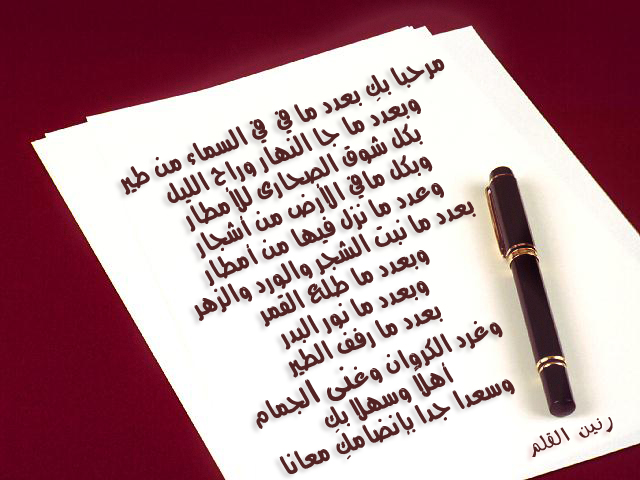 مرحبا بكِ بعدد ما في في السماء من طير
وبعدد ما جا النهار وراح الليل
بكل شوق الصحارى للأمطار
وبكل مافي الأرض من أشجار
وعدد ما نزل فيها من أمطار
بعدد ما نبت الشجر والورد والزهر
وبعدد ما طلع القمر
وبعدد ما نور البدر
بعدد ما رفف الطير
وغرد الكروان وغنى الحمام
أهلا وسهلا بكِ
وسعدا جدا بإنضامكِ معانا
رنين القلم